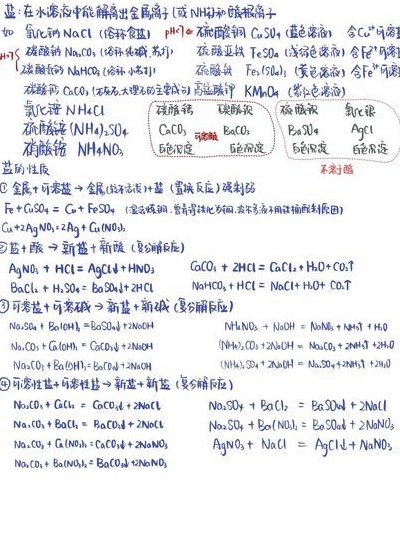 盐：在水溶液中能解离出金属离子(或NH4)和酸根离子
如 氯化钠 NaCl (俗称食盐) pH<7 硫酸铜 CuSO4 (蓝色溶液) 含Cu²⁺可溶
pH>7 碳酸钠 Na2CO3 (俗称纯碱、苏打) 硫酸亚铁 FeSO4 (浅绿色溶液) 含Fe²⁺可溶
碳酸氢钠 NaHCO3 (俗称小苏打) 硫酸铁 Fe2(SO4)3 (黄色溶液) 含Fe³⁺可溶
碳酸钙 CaCO3 (大理石的主要成分) 高锰酸钾 KMnO4 (紫红色溶液)
氯化铵 NH4Cl 碳酸钙 碳酸钡 硫酸钡 氯化银
硫酸铵 (NH4)2SO4 CaCO3 可溶酸 BaCO3 BaSO4 AgCl
硝酸铵 NH4NO3 白色沉淀 白色沉淀 白色沉淀 白色沉淀
盐的性质 不溶于酸
① 金属+可溶盐→金属(较不活泼)+盐 (置换反应) 强制弱
Fe + CuSO4 = Cu + FeSO4
Cu+2AgNO3=2Ag+Cu(NO3)2
② 盐+酸→新盐+新酸 (复分解反应)
AgNO3 + HCl = AgCl↓+HNO3 CaCO3 + 2HCl = CaCl2+H2O+CO2↑
BaCl2 + H2SO4 = BaSO4↓+2HCl NaHCO3 + HCl = NaCl+H2O+CO2↑
③ 可溶盐+可溶碱→新盐+新碱 (复分解反应)
Na2SO4 + Ba(OH)2 = BaSO4↓+2NaOH NH4NO3 + NaOH = NaNO3+NH3↑+H2O
Na2CO3 + Ca(OH)2 = CaCO3↓+2NaOH (NH4)2CO3+2NaOH = Na2CO3+2NH3↑+2H2O
Na2CO3 + Ba(OH)2 = BaCO3↓+2NaOH (NH4)2SO4+2NaOH = Na2SO4+2NH3↑+2H2O
④ 可溶性盐+可溶性盐→新盐+新盐 (复分解反应)
Na2CO3 + CaCl2 = CaCO3↓+2NaCl Na2SO4 + BaCl2 = BaSO4↓+2NaCl
Na2CO3 + BaCl2 = BaCO3↓+2NaCl Na2SO4 + Ba(NO3)2 = BaSO4↓+2NaNO3
Na2CO3 + Ca(NO3)2=CaCO3↓+2NaNO3 AgNO3 + NaCl = AgCl↓+NaNO3
Na2CO3 + Ba(NO3)2=BaCO3↓+2NaNO3